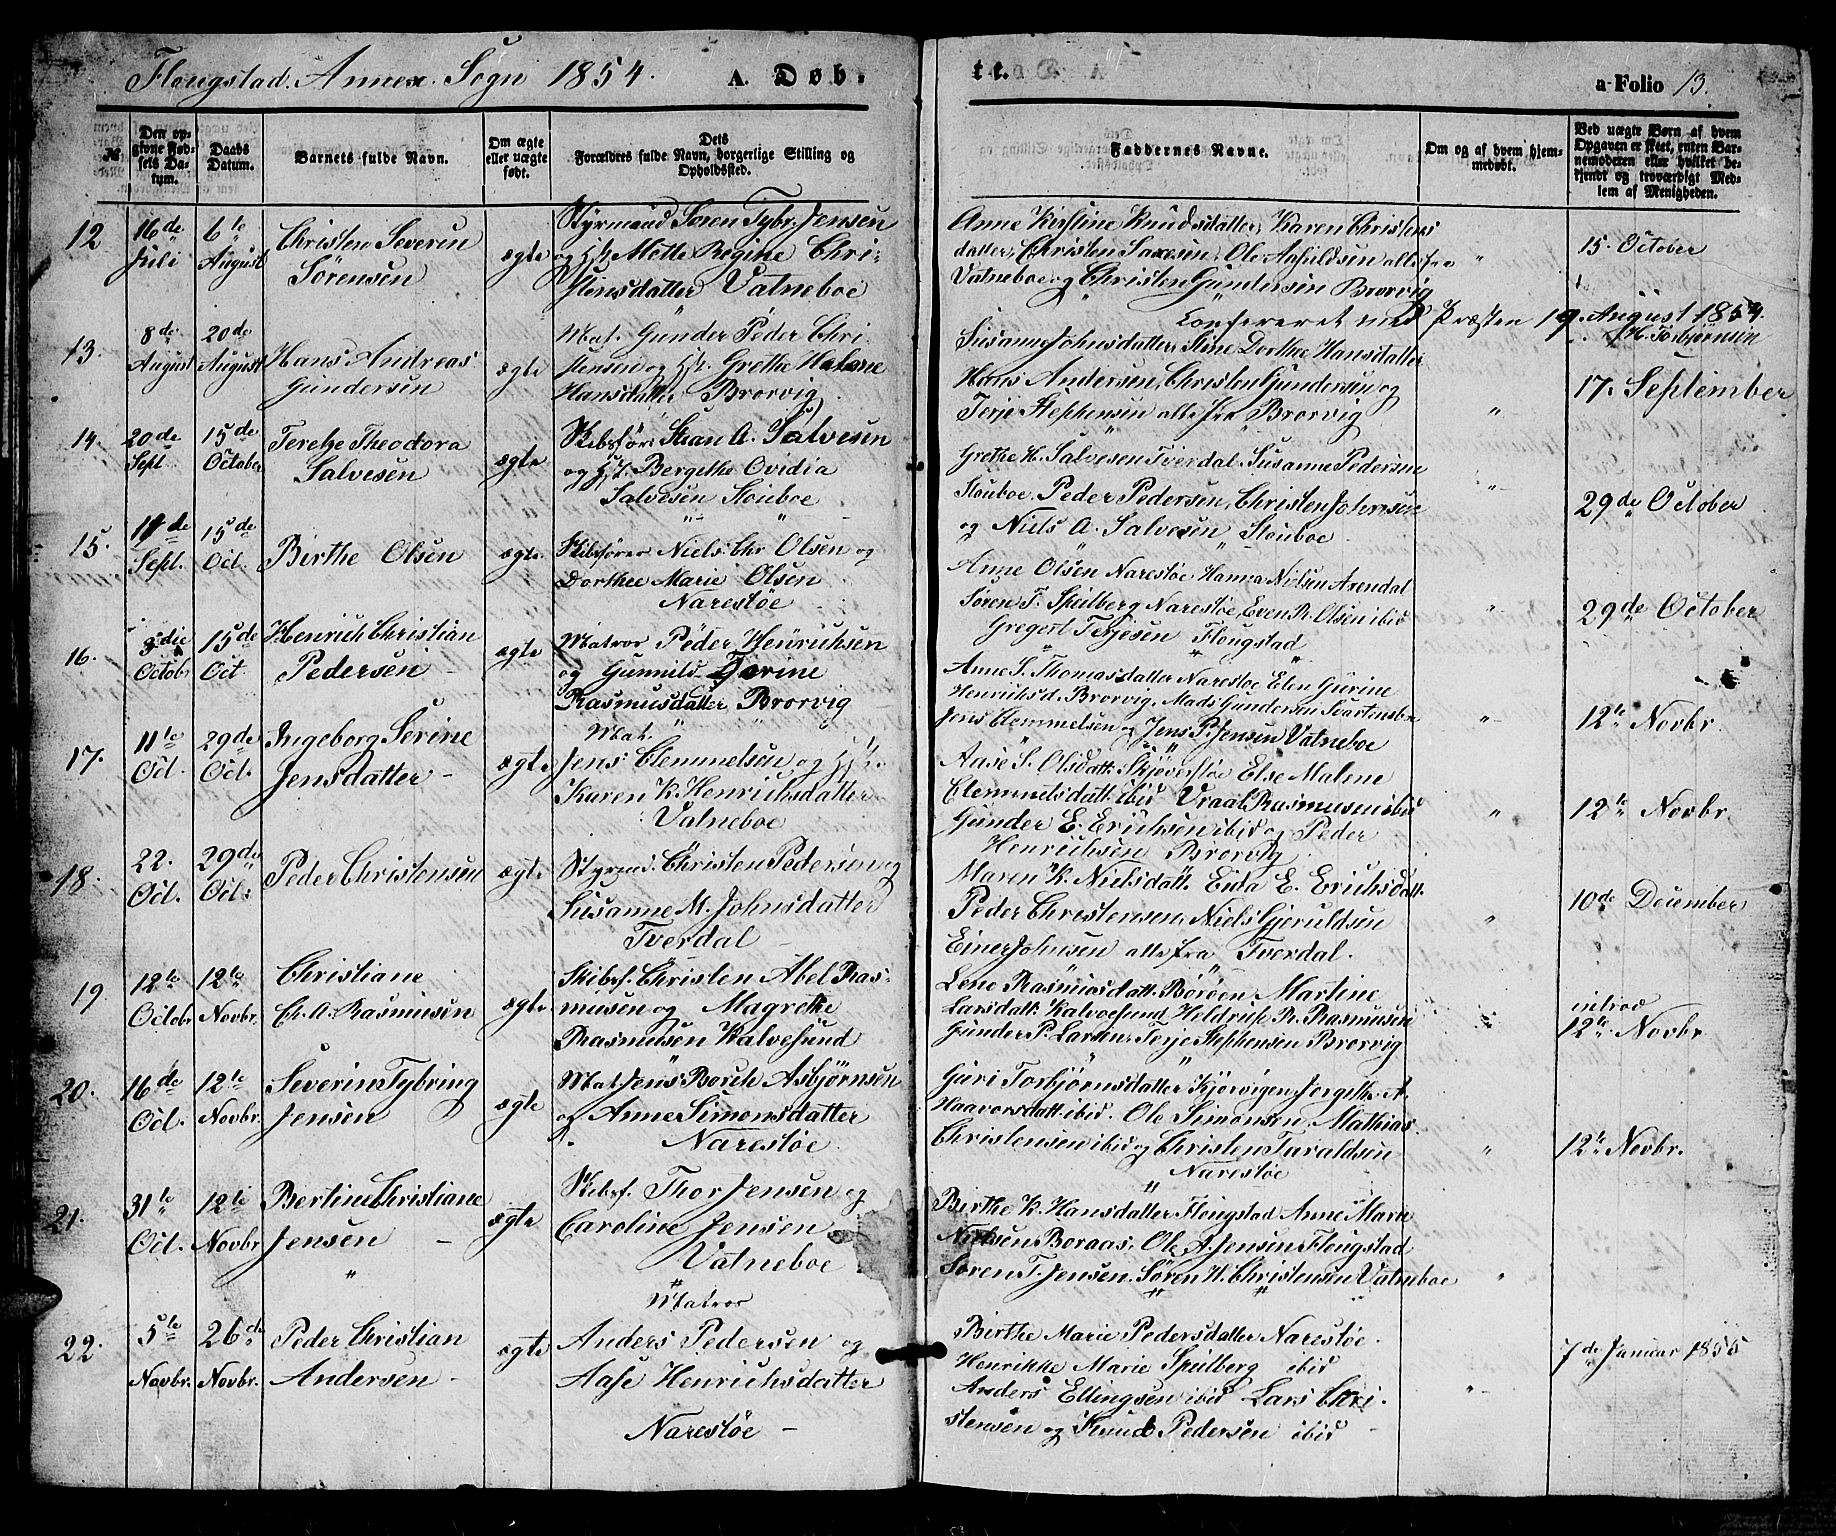 Flougstad. Annex. Sogn 1854.
A. Døb-
tt.
a-Folio 13.
№
Den op-
givne Fød-
sels Da-
tum.
Daabs
Datum.
Barnets fulde Navn.
Om ægte
eller uægte
født.
Dets
Forældres fulde Navn, borgerlige Stilling og
Opholdssted.
Faddernes Navne.
Om og af hvem hjem-
medøbt.
Ved uægte Børn af hvem
Opgaven er skeet, enten Bar-
nemoderen eller hvilket be-
kjendt og troværdigt Med-
lem af Menigheden.
12
16de
Juli
6te
August
Christen Severin
Sörensen
ægte
Styrmand Sören Tybr. Jensen
og H/t Mette Regine Chri-
stensdatter Vatneboe
Anne Kirstine Knudsdatter, Karen Christens
datter, Christen Saxesen, Ole Asfuldsen alle fra
Vatneboe og Christen Gundersen Brorvig
"
15. October
Confereret med Præsten 19. August 1854.
H. Torbjörnsen
13.
8de
August
20de
August
Hans Andreas
Gundersen
ægte
Mat. Gunder Peder Chri-
stensen og H/t. Grethe Helene
Hansdatter Brorvig
Susanne Johnsdatter, Sine Dorthee Hansdatter
Hans Andersen, Christen Gundersen og
Terje Stephensen alle fra Brorvig
"
17. September
14.
20de
Sept.
15de
October
Terelze Theodora
Salvesen
ægte
Skibsför: Stean A. Salvesen
og H/t. Bergethe Ovidia
Salvesen Stouboe
Grethe H. Salvesen Tverdal. Susanne Pedersen
Stouboe. Peder Pedersen, Christen Johnsen
og Niels A. Salvesen Stouboe
"
29de October
15.
11de
Sept.
15de
Oct.
Birthe Olsen
ægte
Skibsförer Niels Chr Olsen og
Dorthee Marie Olsen
Narestöe
Anne Olsen Narestöe, Hanna Nielsen Arendal
Sören T. Speilberg Narestöe, Even R. Olsen ibid
Gregert Terjesen Flougstad
"
29de October
16.
October
15de
Oct
Henrich Christian
Pedersen
ægte
Matros Peder Henrichsen
og Gunnild Torine
Rasmusdatter Brorvig
Anne S. Thomasdatter Narestöe Elen Gurine
Henrichsd. Brorvig. Mads Gundersen Svartensbn
Jens Clemmetsen og Jens P. Jensen Vatneboe
"
12te Novbr
17.
11te
Oct.
29de
Oct.
Ingeborg Serine
Jensdatter
ægte
Mat.
Jens Clemmetsen og H/t.
Karen K. Henrichsdatter
Vatneboe
Aase S. Olsdatt. Skjöverstöe Else Malene
Clemmetsdatt. ibid Vraal Rasmusen ibid
Gunder E. Erichsen ibid og Peder
Henrichsen Brorvig
"
12te Novbr.
18.
22.
Oct.
29de
Oct.
Peder Christensen
ægte
Styrmd. Christen Pedersen og
Susanne M. Johnsdatter
Tverdal
Maren K. Nielsdatt. Eida E. Erichsdatt.
Peder Christensen, Niels Gjeruldsen
Einer Johnsen alle fra Tverdal.
"
10de December
19
12te
Octobr
12te
Novbr.
Christiane
Ch. A. Rasmusen
ægte
Skibsf. Christen Abel Ras-
musen og Magrethe
Rasmusen Kalvesund
Lene Rasmusdatt. Böröen, Martine
Larsdatt. Kalvesund Heldrik R. Rasmusen
Gunder P. Larsen, Terje Stephensen Brorvig
introd
12te Novbr
20.
16de
Oct.
12te
Novbr.
Severin Tybring
Jensen
ægte
Mat Jens Borete Asbjörnsen
og Anne Simonsdatter
Narestöe
Guri Torbjörnsdatter Kjörvigen Jorgethe A.
Haavorsdatt. ibid. Ole Simonsen, Mathias
Christensen ibid og Christen Taraldsen
Narestöe
"
12te Novbr.
21.
31te
Oct.
12te
Novbr
Bertine Christiane
Jensen
ægte
Skibsf. Thor Jensen og
Caroline Jensen
Vatneboe
Birthe K. Hansdatter Flougstad Anne Marie
Nielsen Boraas, Ole A. Jensen Flougstad
Sören T. Jensen. Sören W. Christensen Vatneboe
"
22.
5te
Novbr.
26de
Novbr.
Peder Christian
Andersen
ægte
Matros
Anders Pedersen og
Aase Henrichsdatter
Narestöe
Birthe Marie Pedersdatter Narestöe.
Henrikke Marie Speilberg ibid
Anders Ellingsen ibid Lars Chri-
stensen og Knud Pedersen ibid
"
7de Januar 1855